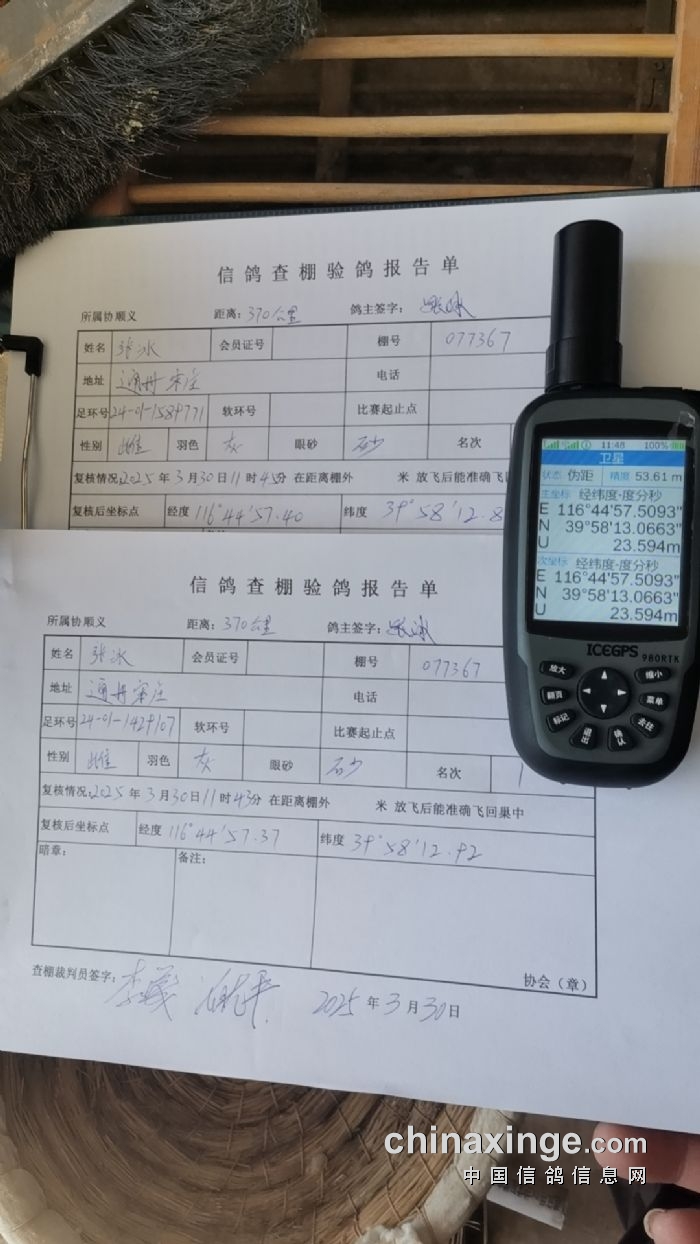 信鸽查棚验鸽报告单
所属协 顺义 距离：370公里 鸽主签字：张冰
姓名 张冰 会员证号 棚号 077367
地址 通州宋庄 电话
足环号 24-01-1589771 软环号 比赛起止点
性别 雌 羽色 灰 眼砂 砂 名次
复核情况：2025年3月30日11时45分 在距离棚外 米 放飞后能准确飞回
复核后坐标点 经度 116°44'57.40 纬度 39°58'12.8
信鸽查棚验鸽报告单
所属协 顺义 距离：370公里 鸽主签字：张冰
姓名 张冰 会员证号 棚号 077367
地址 通州宋庄 电话
足环号 24-01-1429107 软环号 比赛起止点
性别 雌 羽色 灰 眼砂 砂 名次 1
复核情况：2025年3月30日11时43分 在距离棚外 米 放飞后能准确飞回巢中
复核后坐标点 经度 116°44'57.37 纬度 39°58'12.92
暗章： 备注：
协会（章）
查棚裁判员签字： 2025年3月30日
11:48 100%
卫星
状态 伪距 精度 53.61 m
主坐标 经纬度-度分秒
E 116°44'57.5093"
N 39°58'13.0663"
U 23.594m
次坐标 经纬度-度分秒
E 116°44'57.5093"
N 39°58'13.0663"
U 23.594m
ICEGPS 980RTK
放大 缩小
翻页 菜单
标记 退出 确认 去往
chinaxinge.com
中国信鸽信息网